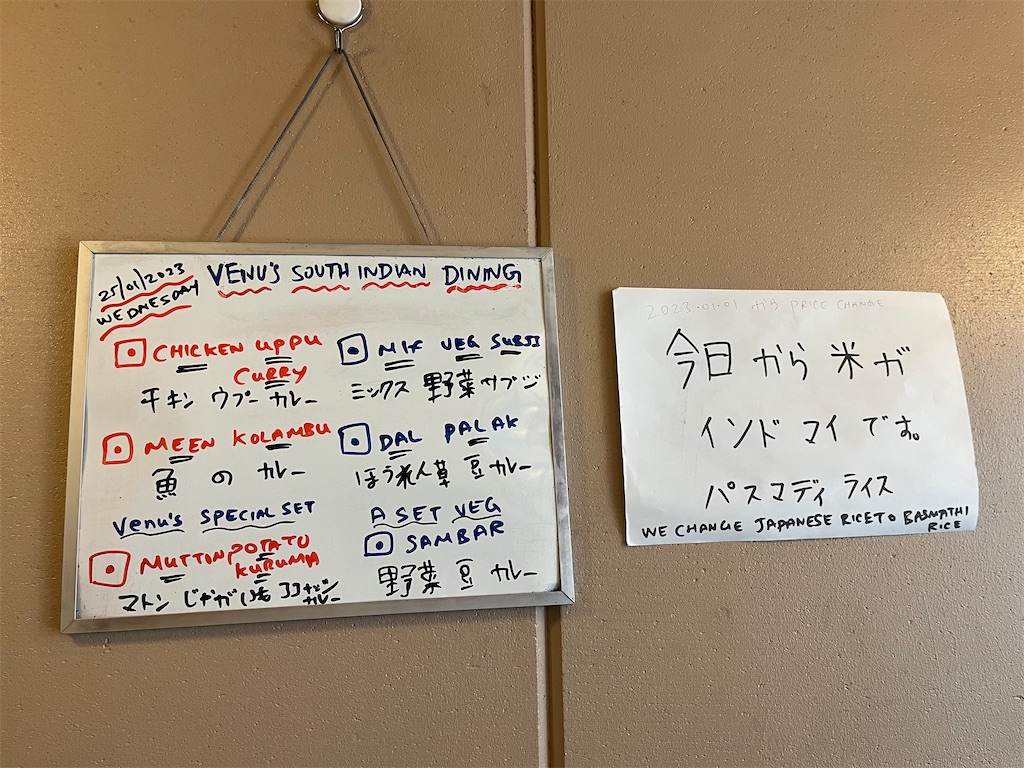 25/01/2023
WEDNESDAY
VENU'S SOUTH INDIAN DINING
CHICKEN UPPU
CURRY
チキン ウプー カレー
MEEN KOLAMBU
魚 の カレー
Venu's SPECIAL SET
MUTTON POTATO
KURUMA
マトン じゃがいも ココナッツ
カレー
MIX VEG SUBJI
ミックス 野菜 サブジ
DAL PALAK
ほうれん草 豆 カレー
A SET VEG
SAMBAR
野菜 豆 カレー
2023.01.01 から PRICE CHANGE
今日 から 米 が
インド マイ です。
パスマディ ライス
WE CHANGE JAPANESE RICE TO BASMATHI
RICE